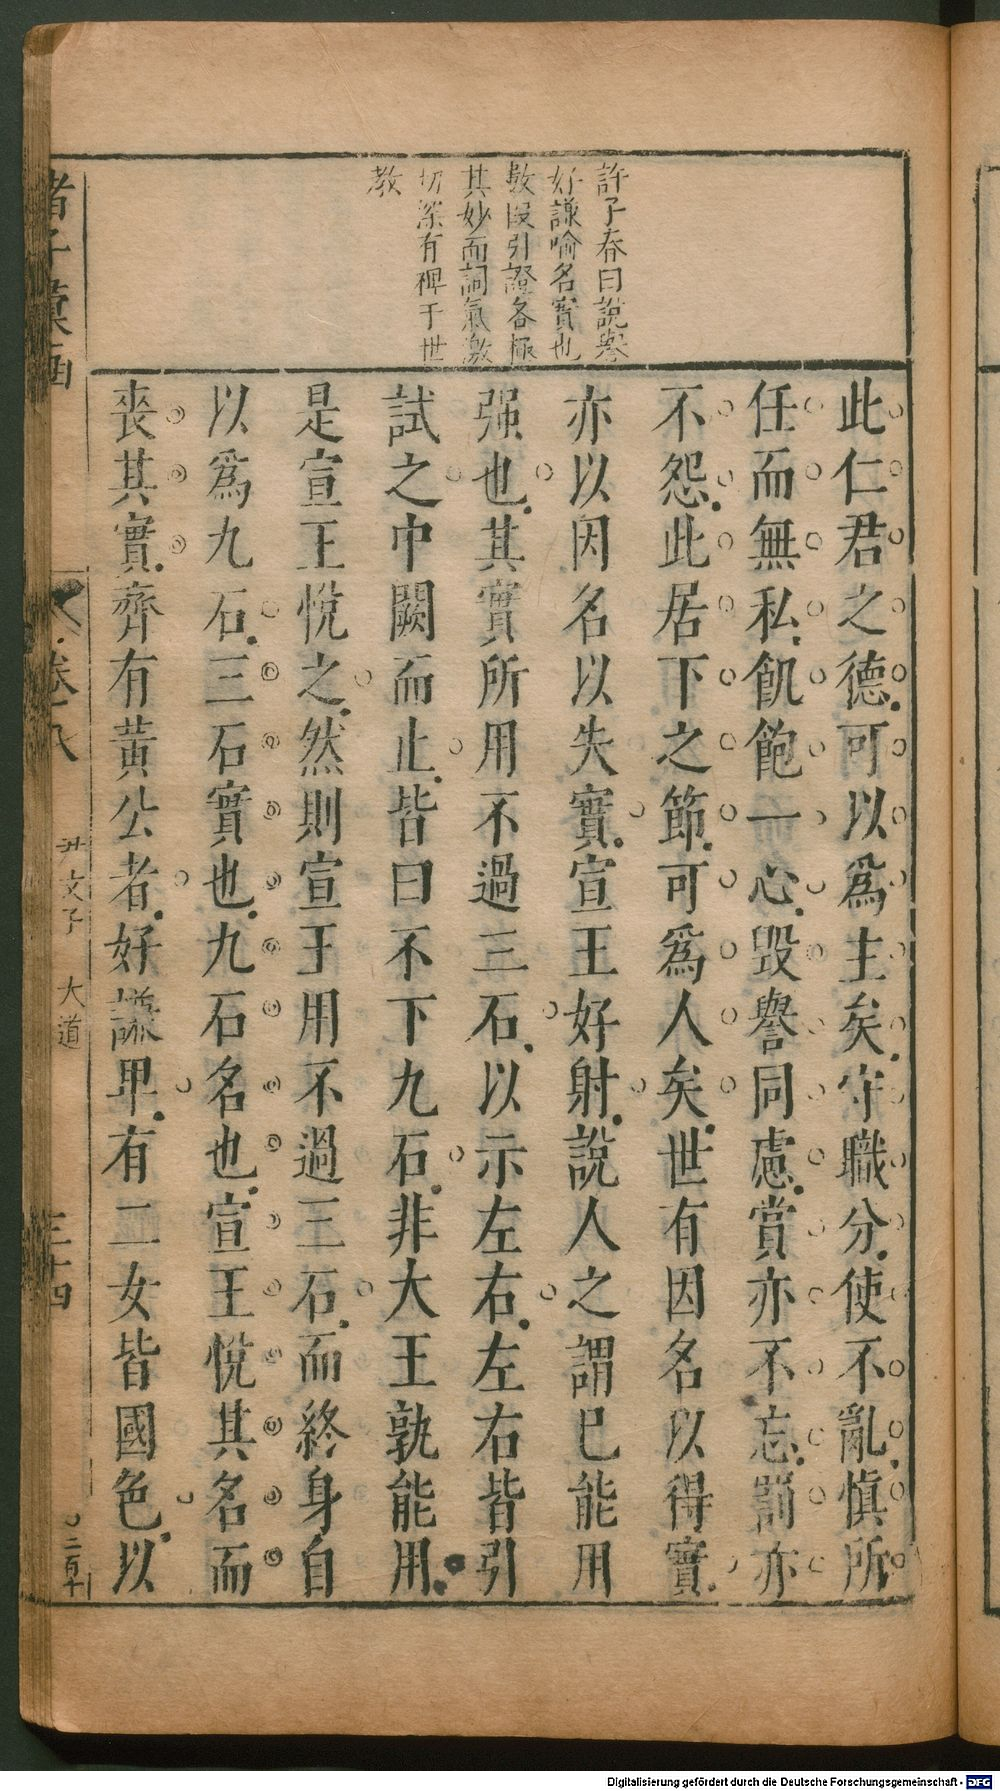 許子春曰說譽
好謙喻名實也
數段引證各極
其妙而詞氣激
切深有裨于世
教
此仁君之德可以為主矣守職分使不亂慎所
任而無私飢飽一心毀譽同慮賞亦不忘罰亦
不怨此居下之節可為人矣世有因名以得實
亦以因名以失實宣王好射說人之謂已能用
强也其實所用不過三石以示左右左右皆引
試之中闕而止皆曰不下九石非大王孰能用
是宣王悅之然則宣王用不過三石而終身自
以為九石三石實也九石名也宣王悅其名而
喪其實齊有黃公者好謙卑有二女皆國色以
卷
尹文子 大道
三十四
Digitalisierung gefördert durch die Deutsche Forschungsgemeinschaft - DFG